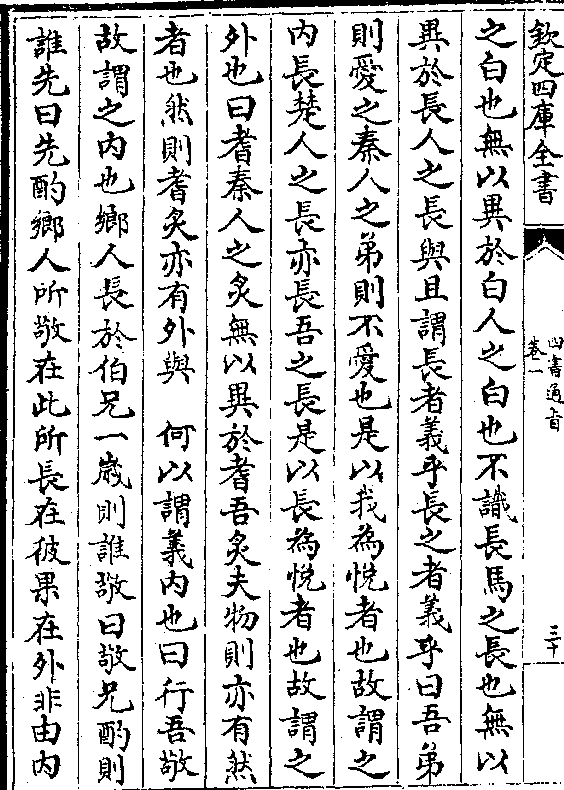 欽定四庫全書
四書通旨
卷一
三十
之白也無以異於白人之白也不識長馬之長也無以
異於長人之長與且謂長者義乎長之者義乎曰吾弟
則愛之秦人之弟則不愛也是以我為悅者也故謂之
內長楚人之長亦長吾之長是以長為悅者也故謂之
外也曰耆秦人之炙無以異於耆吾炙夫物則亦有然
者也然則耆炙亦有外與　何以謂義內也曰行吾敬
故謂之內也鄉人長於伯兄一歲則誰敬曰敬兄酌則
誰先曰先酌鄉人所敬在此所長在彼果在外非由內